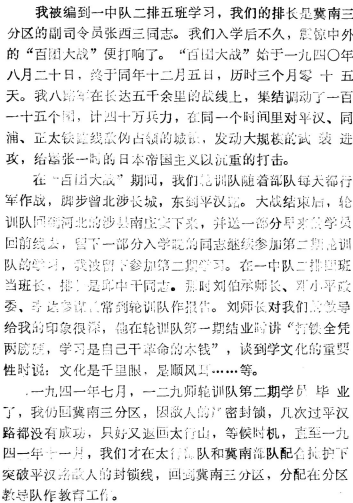 我被编到一中队二排五班学习，我们的排长是冀南三
分区的副司令员张西三同志。我们入学后不久，震惊中外
的“百团大战”便打响了。“百团大战”始于一九四〇年
八月二十日，终于同年十二月五日，历时三个月零十五
天。我八路军在长达五千余里的战线上，集结调动了一百
一十五个团，计四十万兵力，在同一个时间里对平汉、同
浦、正太铁路线敌伪占领的城镇，发动大规模的武装进
攻，给嚣张一时的日本帝国主义以沉重的打击。
在“百团大战”期间，我们轮训队随着部队每天都行
军作战，脚步曾北涉长城，东到平汉路。大战结束后，轮
训队回到河北的涉县南庄驻下来，并送一部分早来的学员
回前线去，留下一部分入学晚的同志继续参加第二期轮训
队的学习，我被留下参加第二期学习。在一中队二排四班
当班长，排长是中干同志。那时刘伯承师长、邓小平政
委、李达参谋长常到轮训队作报告。刘师长对我们的教导
给我的印象很深，他在轮训队第一期结业时讲“打铁全凭
两膀硬，学习是自己干革命的本钱”，谈到学文化的重要
性时说：文化是千里眼，是顺风耳……等。
一九四一年七月，一二九师轮训队第二期学员毕业
了，我仍回冀南三分区，因敌人的严密封锁，几次过平汉
路都没有成功，只好又返回太行山，等候时机，直至一九
四一年十一月，我们才在太行部队和冀南部队配合掩护下
突破平汉路敌人的封锁线，回到冀南三分区，分配在分区
教导队作教育工作。